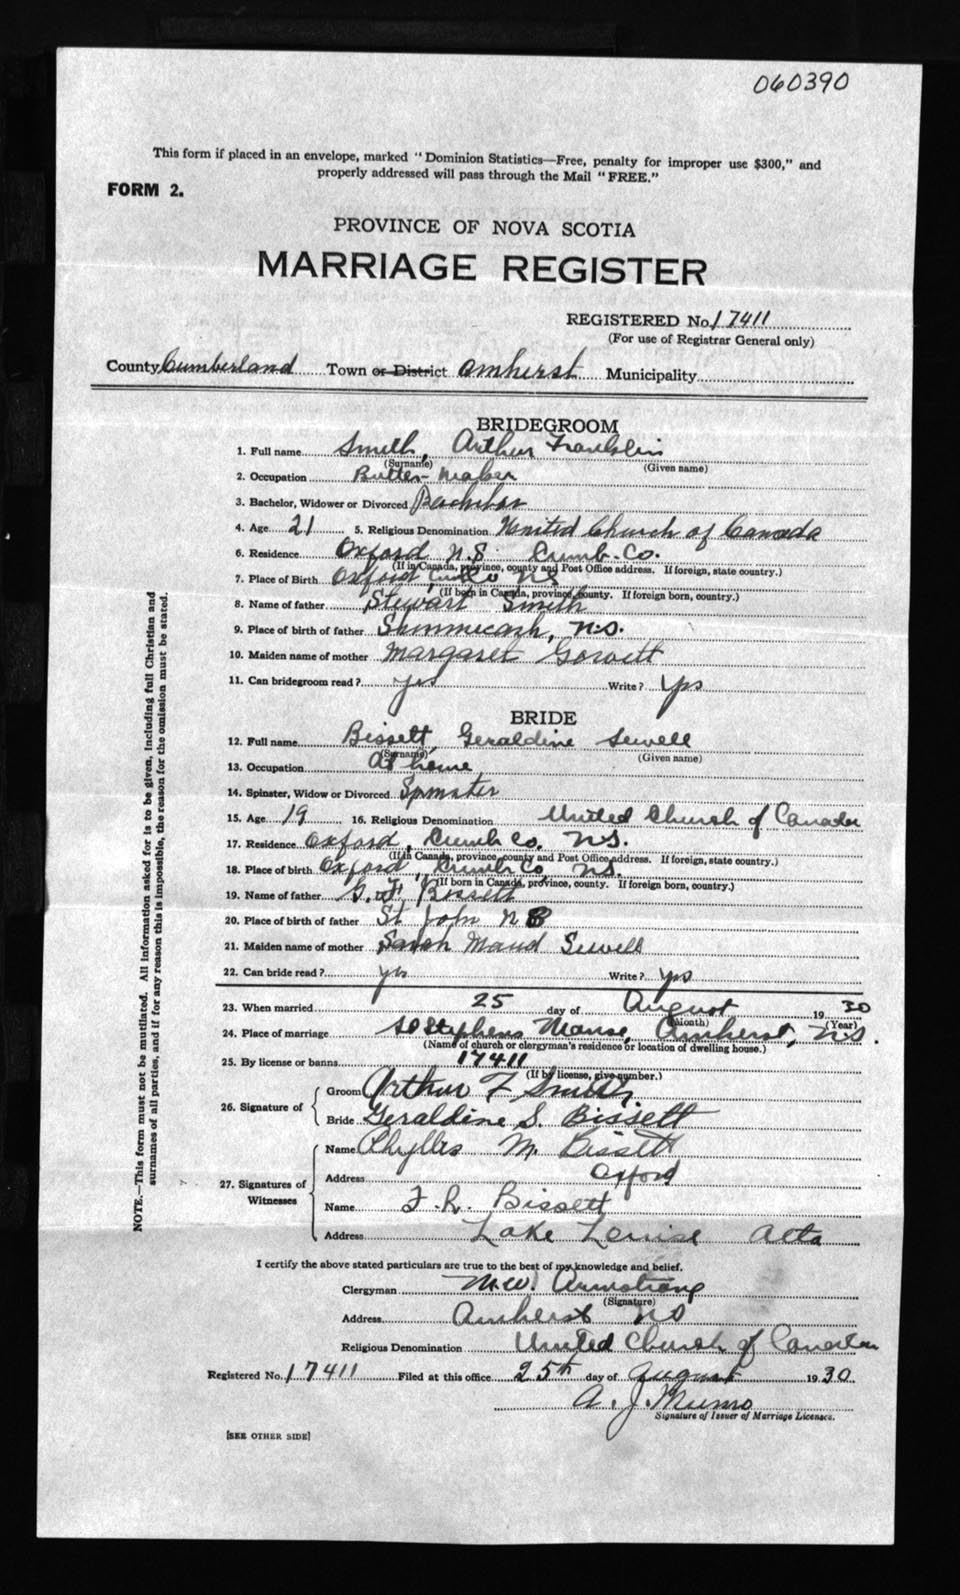 060390
This form if placed in an envelope, marked "Dominion Statistics—Free, penalty for improper use $300," and
properly addressed will pass through the Mail "FREE."
FORM 2.
PROVINCE OF NOVA SCOTIA
MARRIAGE REGISTER
REGISTERED No. 17411
(For use of Registrar General only)
County Cumberland Town or District Amherst Municipality
BRIDEGROOM
1. Full name Smith, Arthur Franklin
(Surname) (Given name)
2. Occupation Butter-maker
3. Bachelor, Widower or Divorced Bachelor
4. Age 21 5. Religious Denomination United Church of Canada
6. Residence Oxford N.S. Cumb. Co.
(If in Canada, province, county and Post Office address. If foreign, state country.)
7. Place of Birth Oxford, Cum Co NS
(If born in Canada, province, county. If foreign born, country.)
8. Name of father Stewart Smith
9. Place of birth of father N.S.
10. Maiden name of mother Margaret
11. Can bridegroom read? yes Write? yes
BRIDE
12. Full name Bissett, Geraldine Sewell
(Surname) (Given name)
13. Occupation At home
14. Spinster, Widow or Divorced Spinster
15. Age 19 16. Religious Denomination United Church of Canada
17. Residence Oxford, Cumb Co. N.S.
(If in Canada, province, county and Post Office address. If foreign, state country.)
18. Place of birth Oxford, Cumb Co N.S.
(If born in Canada, province, county. If foreign born, country.)
19. Name of father G. F. Bissett
20. Place of birth of father St John N B
21. Maiden name of mother Sarah Maud Sewell
22. Can bride read? yes Write? yes
23. When married 25 day of August 19 30
(Month) (Year)
24. Place of marriage St Stephens Manse, Amherst, N.S.
(Name of church or clergyman's residence or location of dwelling house.)
25. By license or banns 17411
(If by license, give number.)
26. Signature of
Groom Arthur F Smith.
Bride Geraldine S. Bissett
27. Signatures of Witnesses
Name Phyllis M. Bissett
Address Oxford
Name F. R. Bissett
Address Lake Louise Alta
I certify the above stated particulars are true to the best of my knowledge and belief.
Clergyman Armstrong
(Signature)
Address Amherst NS
Religious Denomination United Church of Canada
Registered No. 17411 Filed at this office 25th day of August 19 30.
A. J. Munro
Signature of Issuer of Marriage Licenses.
[SEE OTHER SIDE]
NOTE.—This form must not be mutilated. All information asked for is to be given, including full Christian and
surnames of all parties, and if for any reason this is impossible, the reason for the omission must be stated.